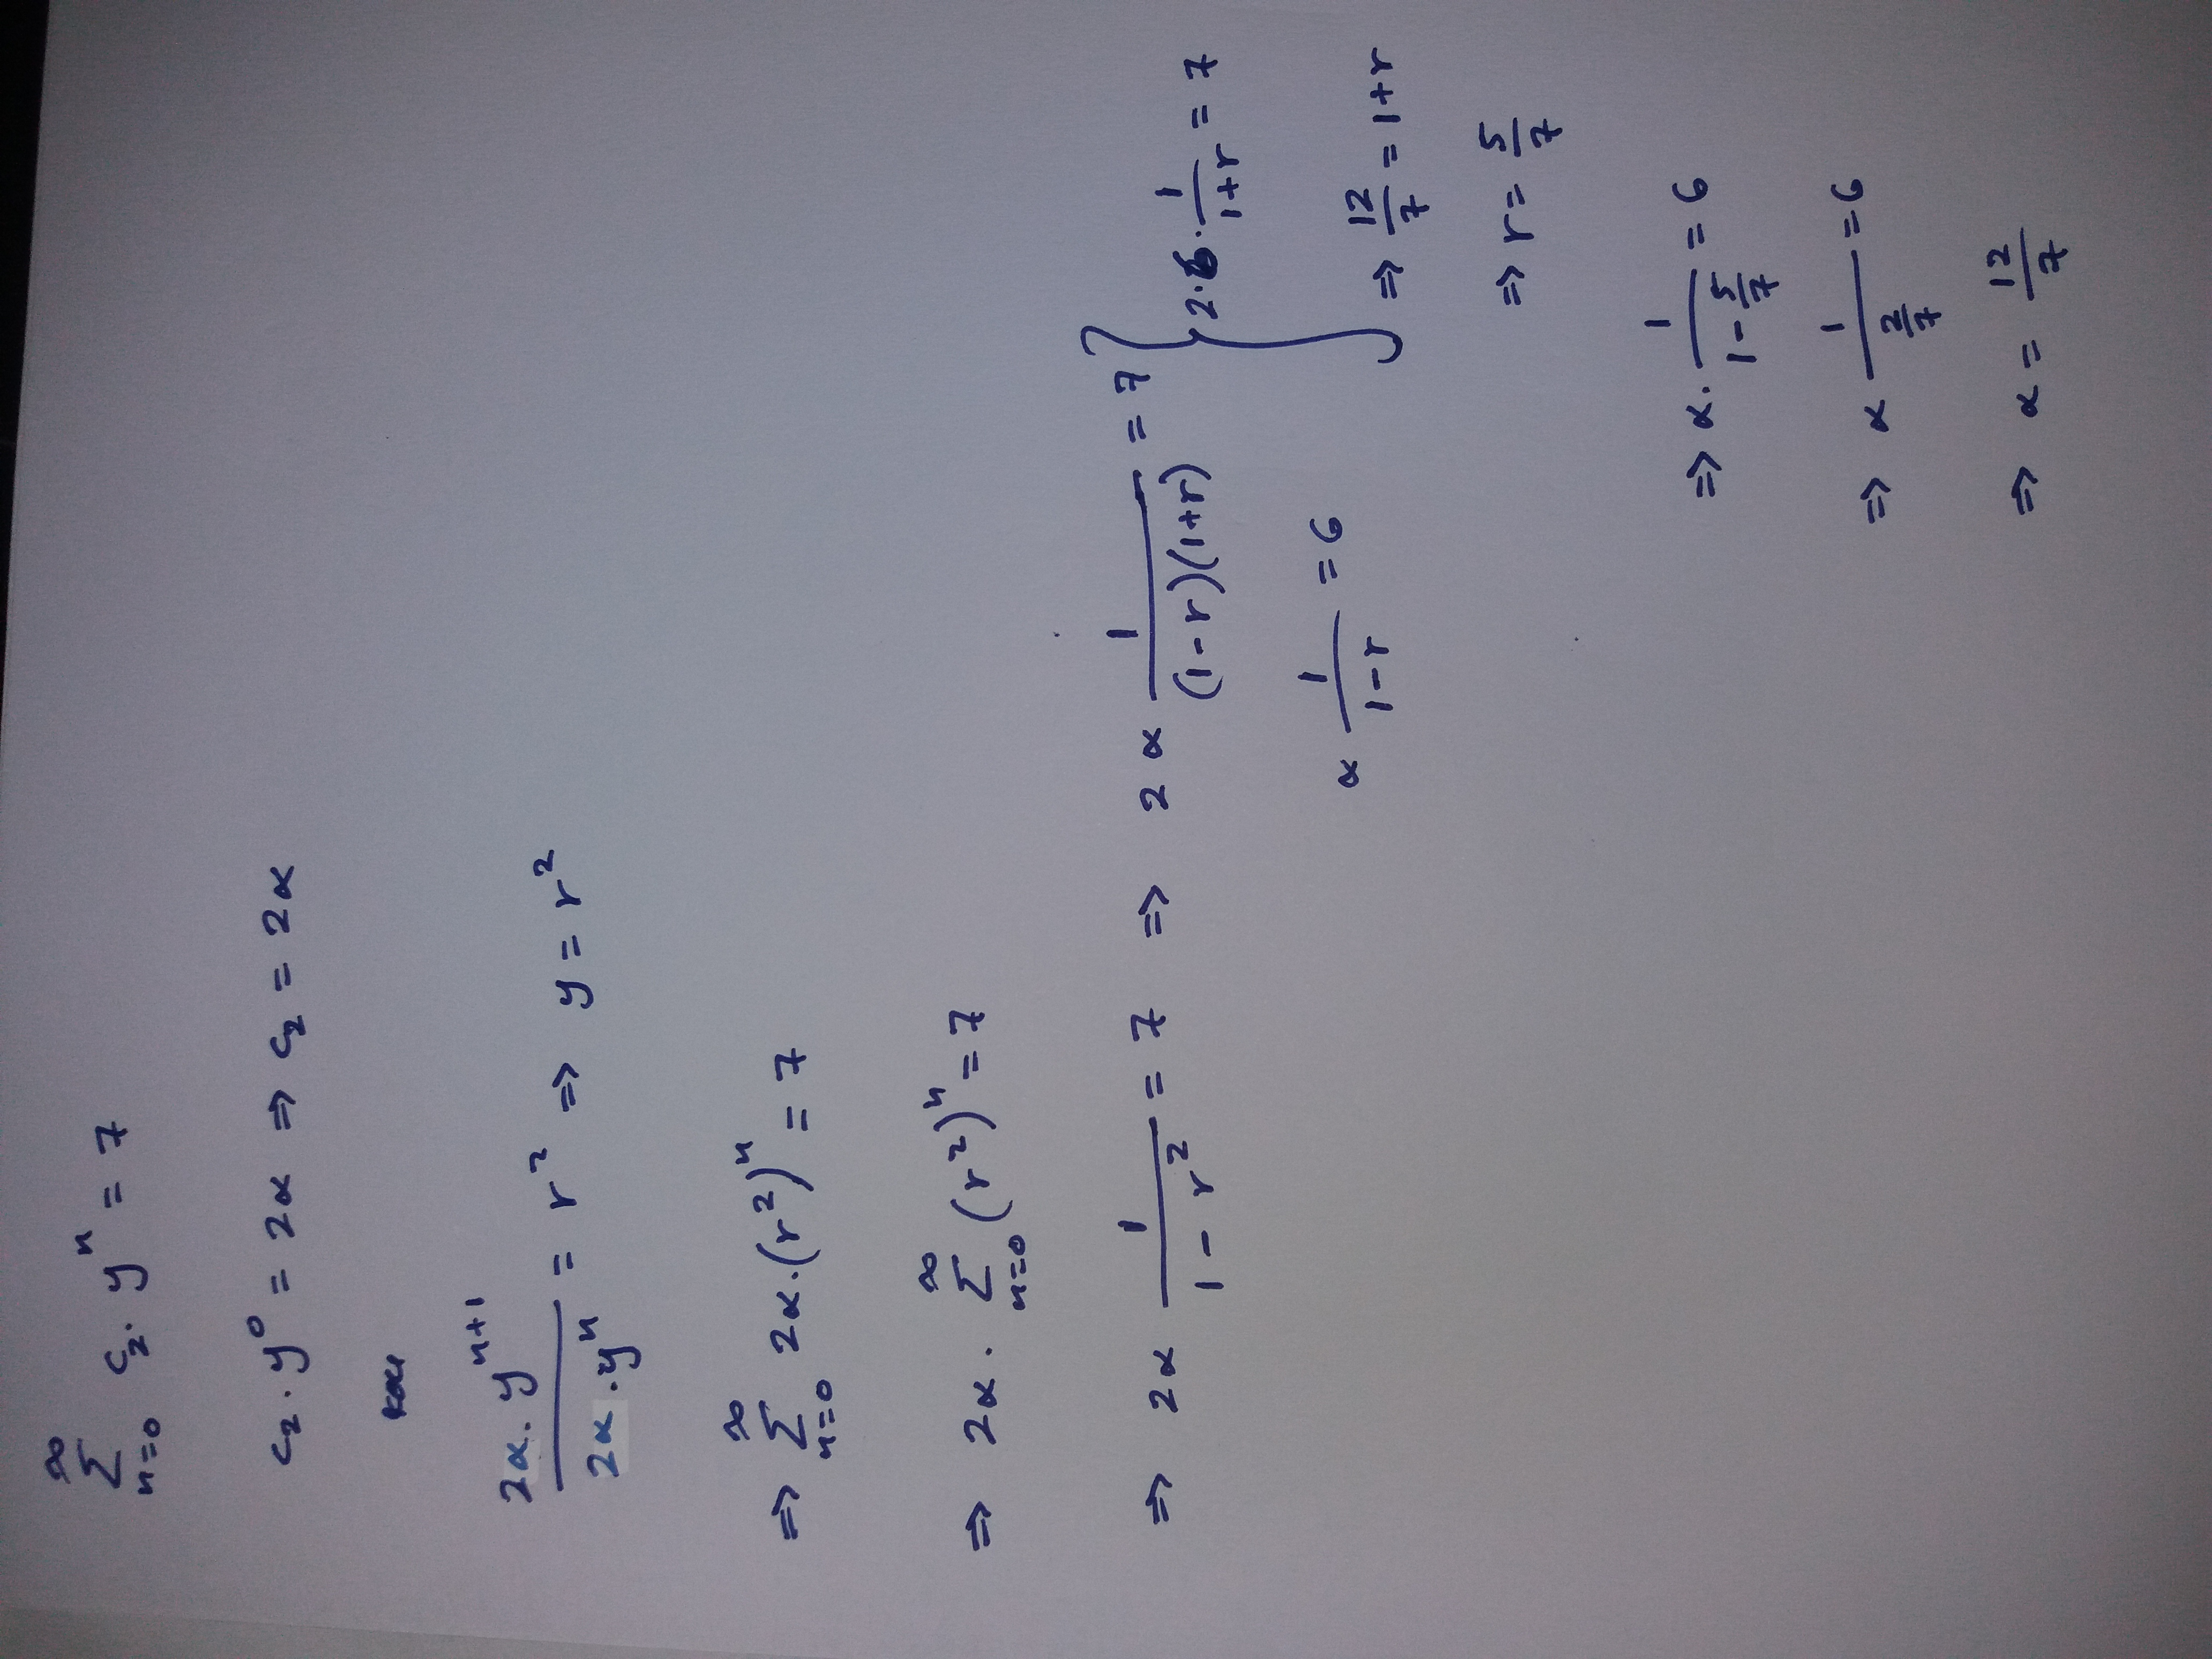 ∑_{n=0}^{∞} c₂·yⁿ = 7
c₂·y⁰ = 2α ⇒ c₂ = 2α
και
(2α·yⁿ⁺¹)/(2α·yⁿ) = r² ⇒ y = r²
⇒ ∑_{n=0}^{∞} 2α·(r²)ⁿ = 7
⇒ 2α·∑_{n=0}^{∞} (r²)ⁿ = 7
⇒ 2α 1/(1-r²) = 7 ⇒ 2α 1/((1-r)(1+r)) = 7 } 2·6·1/(1+r) = 7
α 1/(1-r) = 6 ⇒ 12/7 = 1+r
⇒ r = 5/7
⇒ α·1/(1-5/7) = 6
⇒ α 1/(2/7) = 6
⇒ α = 12/7